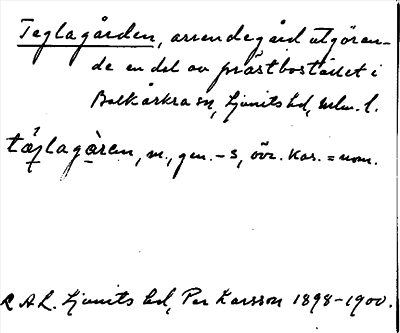 Teglagården, arrendegård utgöran-
de en del av prästbostället i
Balkåkra sn, Ljunits hd, Mlm. l.
tæglagàren, m., gen. -s, övr. kas. = nom.
L A L. Ljunits hd, Per Larsson 1898-1900.